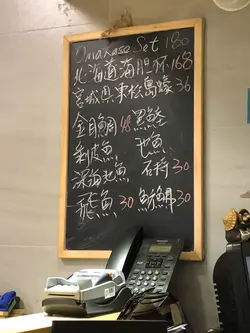 Omakase Set 180
北海道海胆杯 168
宮城県東松島蠔 36
金目鯛 48 黑鯥
剝皮魚 池魚
深海池魚 石狗 30
飛魚 30 鯛 30